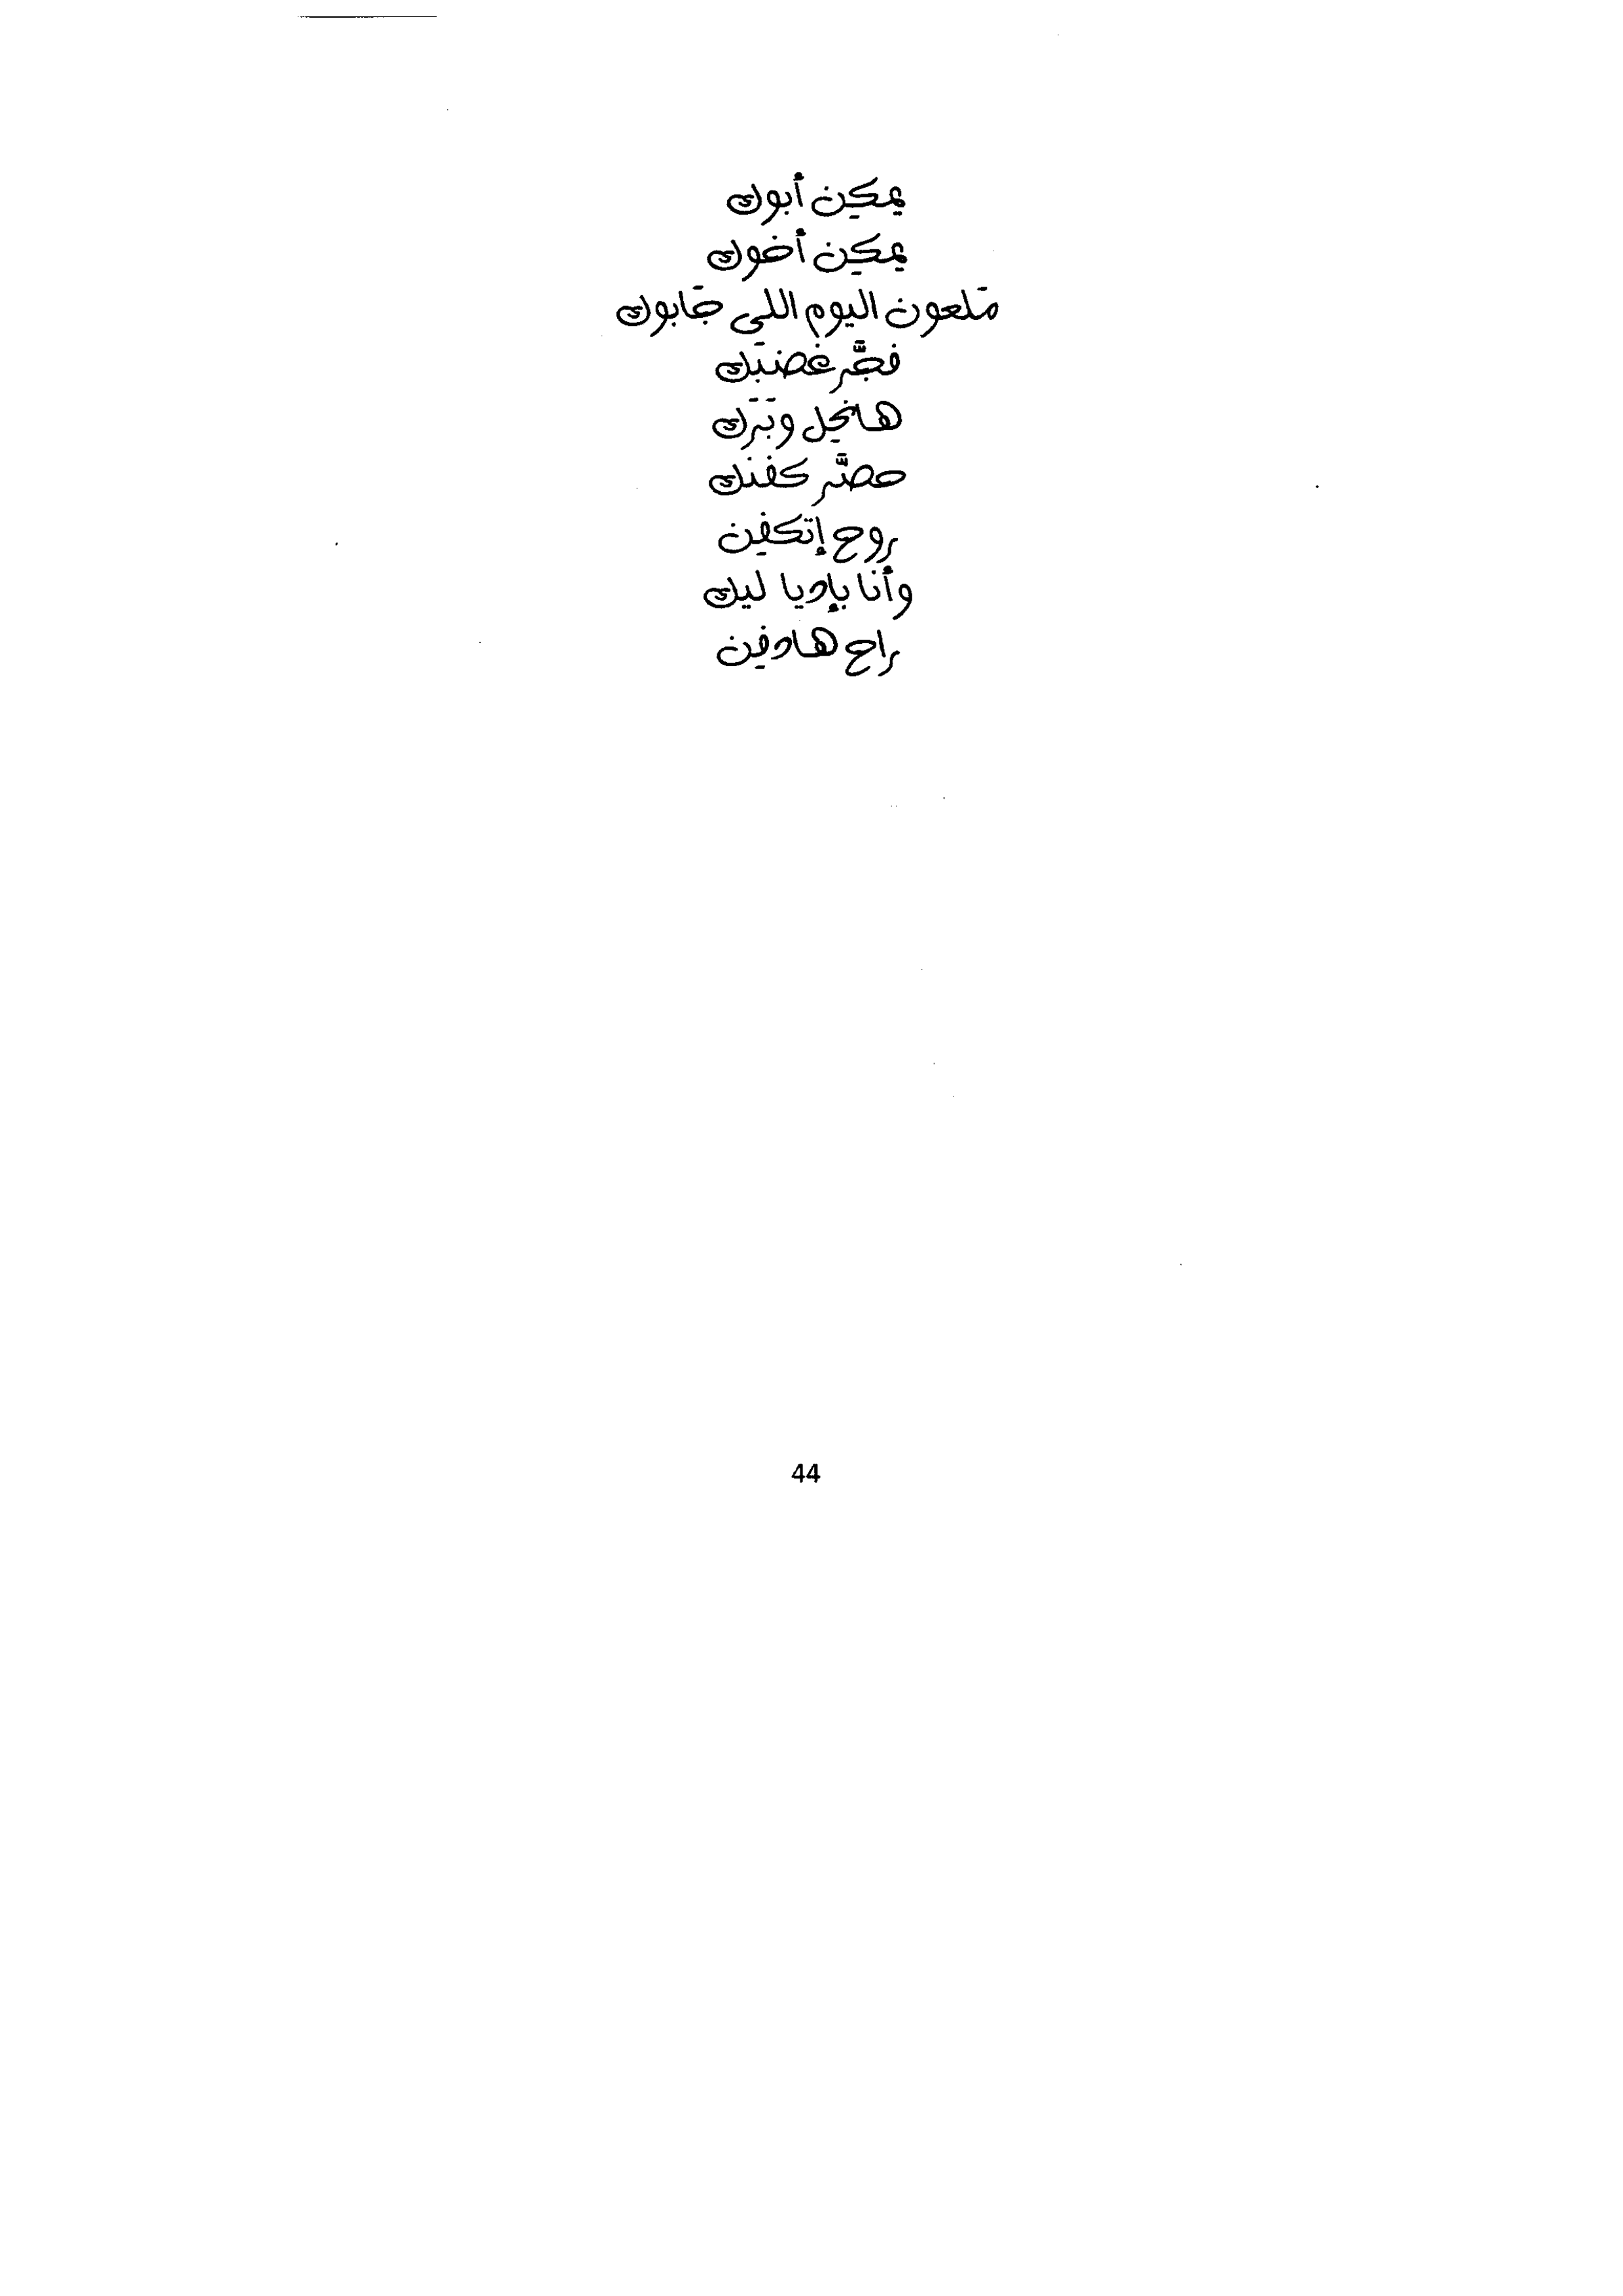 يمكِن أبوك
يمكِن أخوك
مَلعون اليوم اللى جَابوك
فجَّر غضبَك
هانحِل وبَرَك
حضَّر كفنَك
روح إتكفِن
وأنا بإديا ليك
راح هادفِن
44